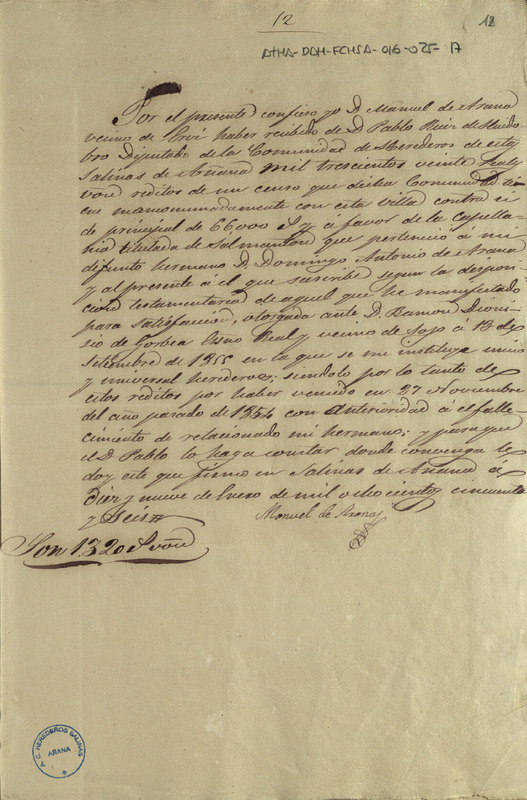 12
12
ATHA-DAH-FCHSA-016-025-17
Por el presente confieso yo D. Manuel de Arana
vecino de haber recibido de D. Pablo Ruiz de Huido
bro Diputado de la Comunidad de Herederos de estas
Salinas de Añana mil trescientos veinte reales
von reditos de un censo que dicha Comunidad tie
ne mancomunadamente con esta villa contra si
de principal de 66,000 r y á favor de la capella
nia titulada de Salmanton que perteneció á mi
difunto hermano D. Domingo Antonio de Arana
y al presente á el que suscribe segun la dispoci
cion testamentaria de aquel que he manifestado
para satisfaccion, otorgada ante D. Ramon Dioni
sio de Gorbea Esno Real y vecino de á 13 de
Setiembre de 1855 en la que se me instituye unico
y universal heredero; siendolo por lo tanto de
estos reditos por haber vencido en 27 Noviembre
del año pasado de 1854 con anterioridad á el falle
cimiento de relacionado mi hermano; y para que
el D. Pablo lo haga constar donde convenga le
doy este que firmo en Salinas de Añana á
Diez y nueve de Enero de mil ochocientos cincuenta
y Seis
Manuel de Arana
Son 1320 r von
C. HEREDEROS SALINAS
AÑANA